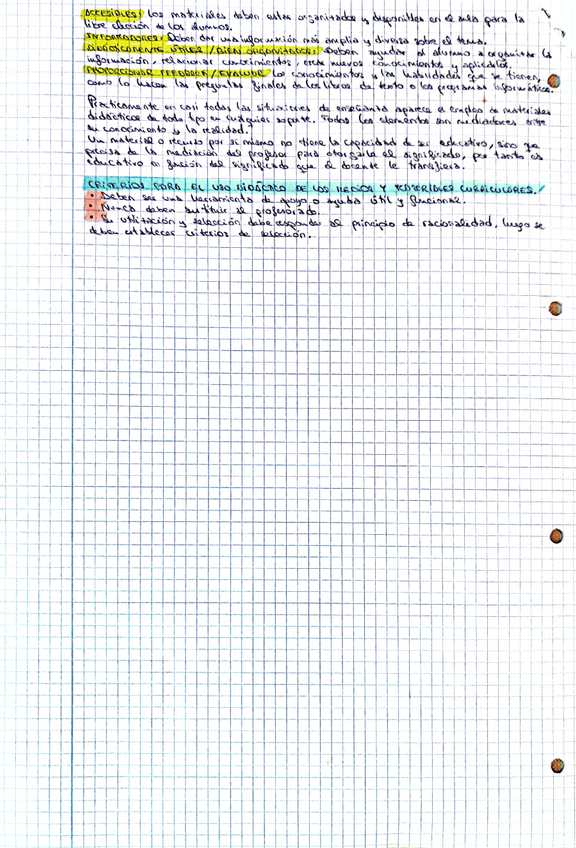 ACCESIBLES: los materiales deben estar organizados y disponibles en el aula para la
libre elección de los alumnos.
INFORMADORES: Deben dar una información más amplia y diversa sobre el tema.
DIDÁCTICAMENTE ÚTILES / BIEN ORGANIZADOS: Deben ayudar al alumno a organizar la
información, relacionar conocimientos, crear nuevos conocimientos y aplicarlos.
PROPORCIONAR FEEDBACK / EVALUAR los conocimientos y las habilidades que se tienen,
como lo hacen las preguntas finales de los libros de texto o los programas informáticos.
Prácticamente en casi todas las situaciones de enseñanza aparece el empleo de materiales
didácticos de todo tipo en cualquier soporte. Todos los elementos son mediadores entre
su conocimiento y la realidad.
Un material o recurso por si mismo no tiene la capacidad de ser educativo, sino que
precisa de la mediación del profesor para otorgarle el significado, por tanto es
educativo en función del significado que el docente le transfiera.
CRITERIOS PARA EL USO DIDÁCTICO DE LOS MEDIOS Y MATERIALES CURRICULARES.
• Deben ser una herramienta de apoyo o ayuda útil y funcional.
• Nunca deben sustituir al profesorado.
• Su utilización y selección debe responder al principio de racionalidad, luego se
deben establecer criterios de selección.